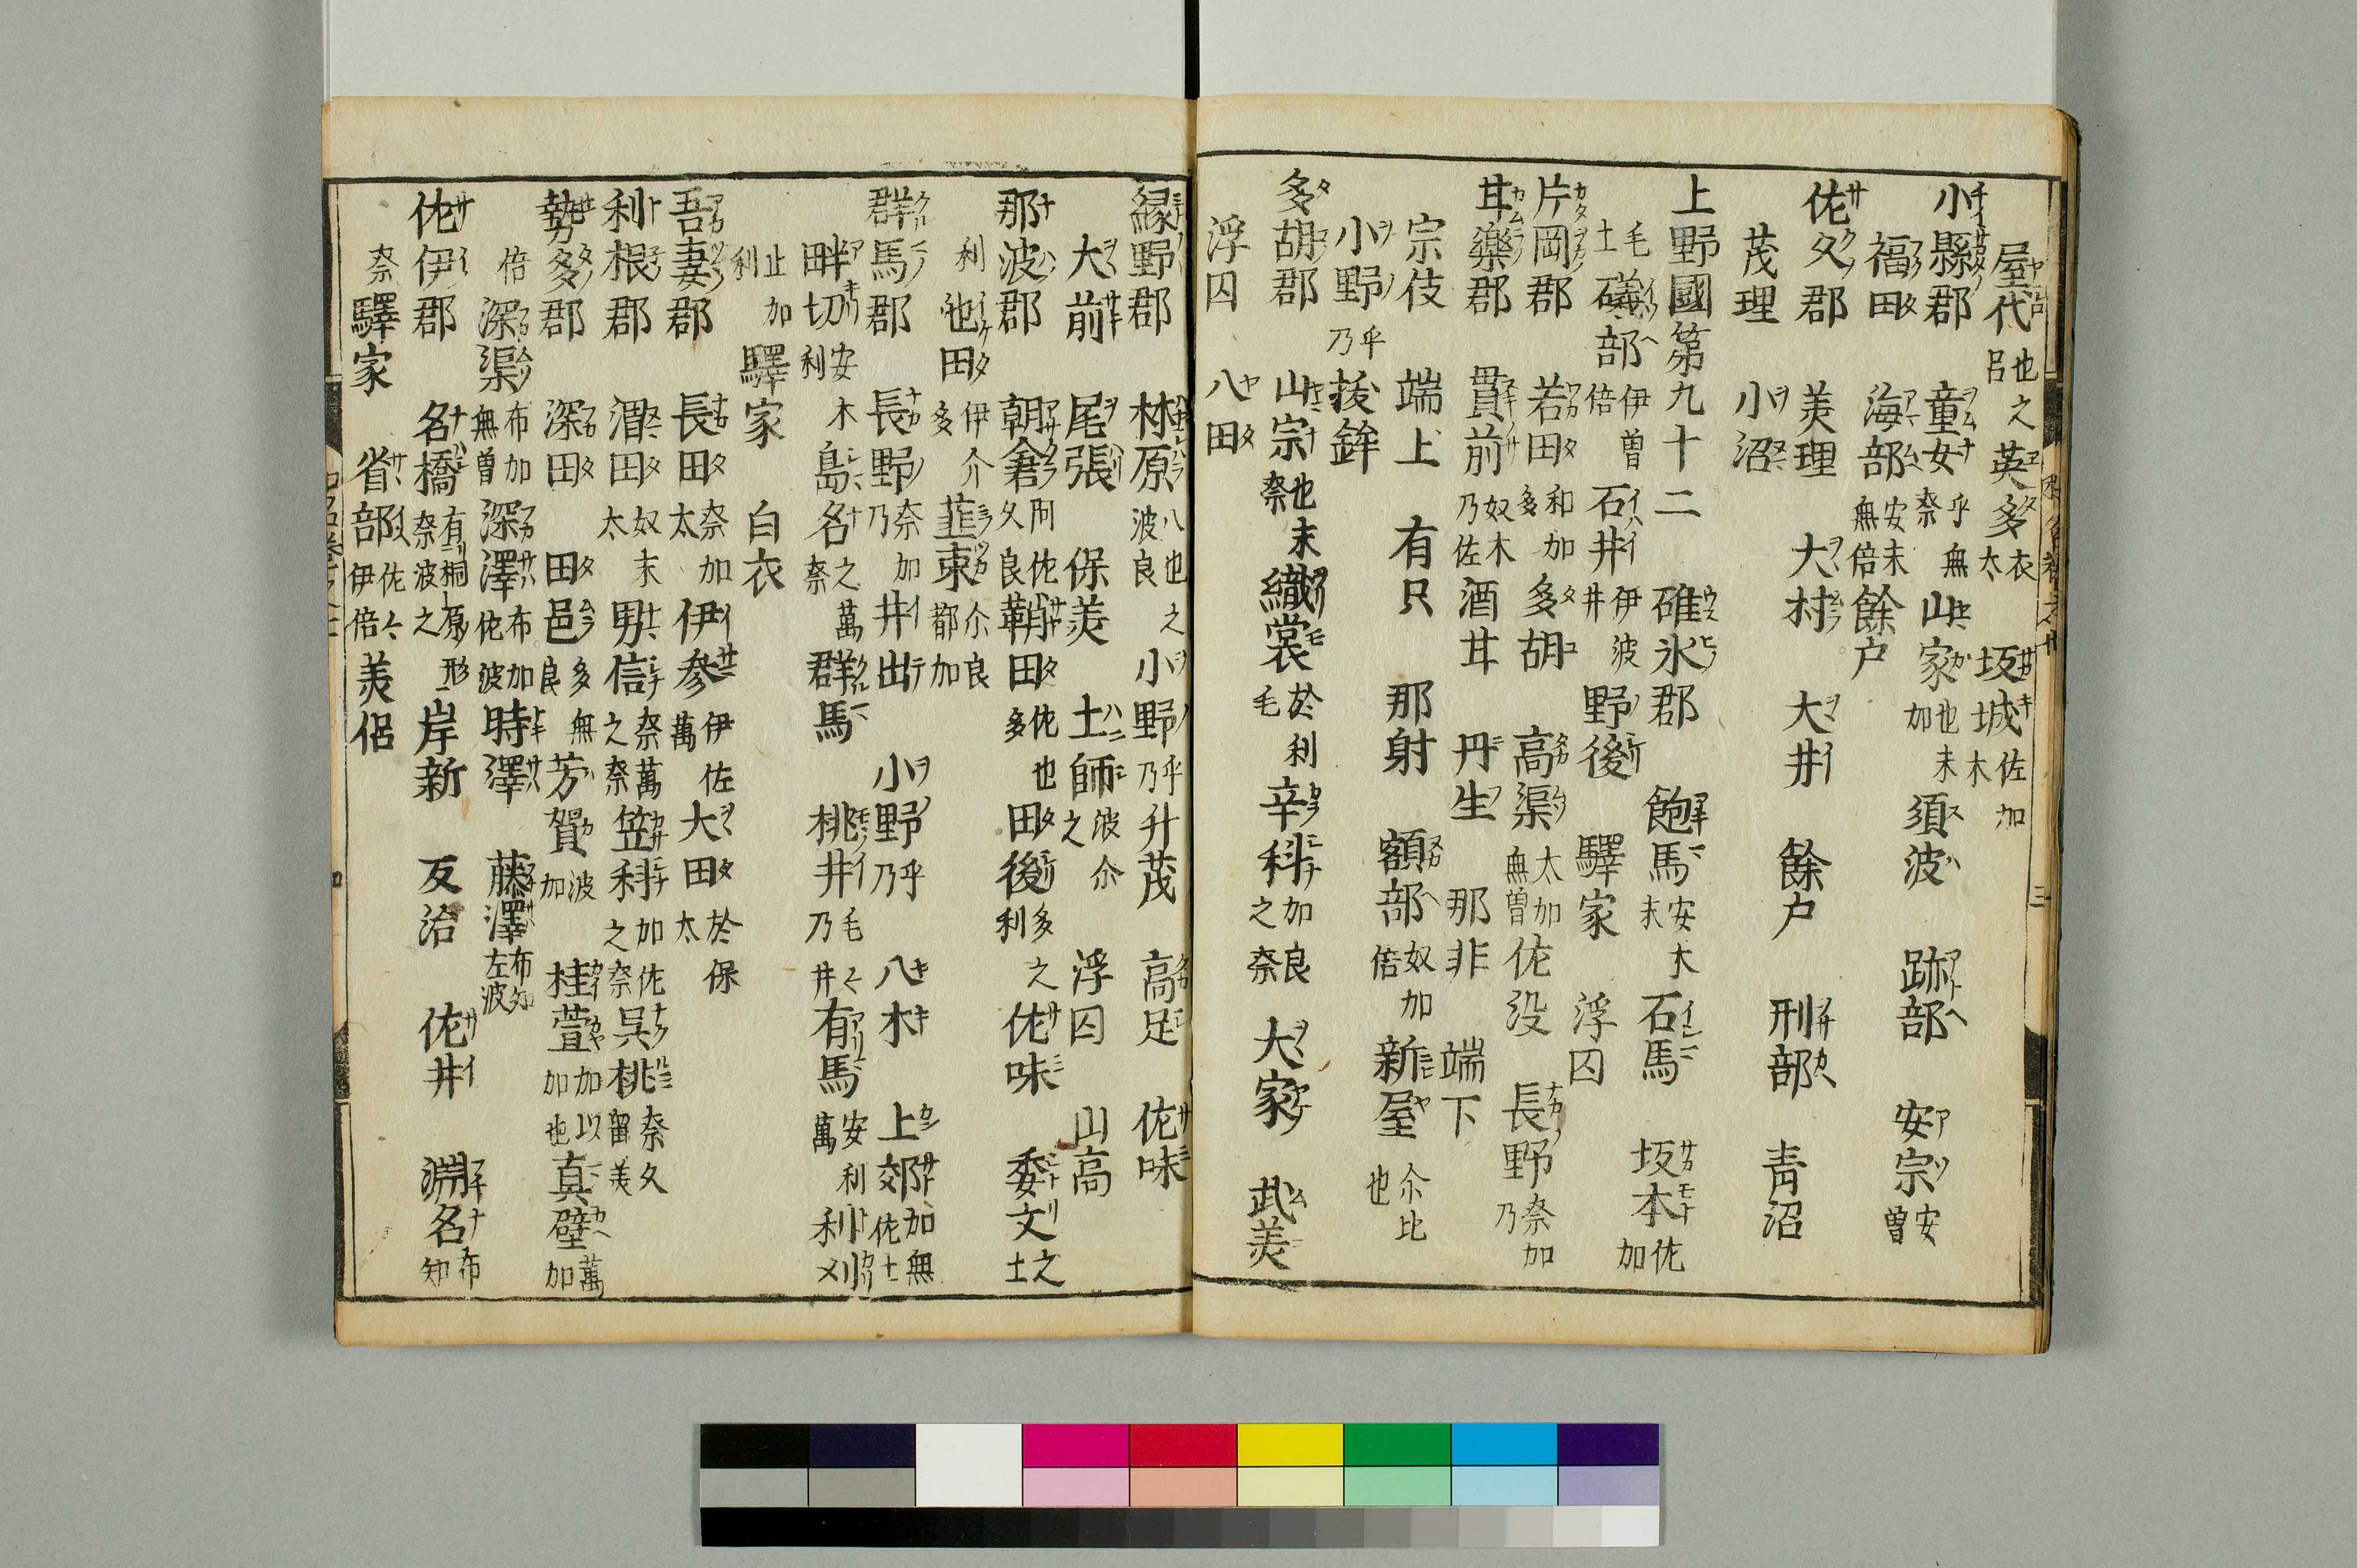 屋代也之呂 英多衣太 坂城佐加木
小縣郡 童女乎無奈 山家也末加 須波 跡部 安宗安曽
福田 海部安末無倍 餘户
佐久郡 美理 大村 大井 餘户 刑部 青沼
茂理 小沼
上野國第九十二
碓氷郡 飽馬安末 石馬 坂本佐加毛土
礒部伊曽倍 石井伊波井 野後 驛家 浮囚
片岡郡 若田和加多 多胡 高渠太加無曽 佐没 長野奈加乃
甘楽郡 貫前奴木乃佐 酒甘 丹生 那非 端下
宗伎 端上 有只 那射 額部奴加倍 新屋尒比也
小野乎乃 抜鉾
多胡郡 山宗也末奈 織裳於利毛 辛科加良之奈 大家 武美
浮囚 八田
緑野郡 林原八也之波良 小野乎乃 升茂 高足 佐味
大前 尾張 保美 土師波尒之 浮囚 山高
那波郡 朝倉阿佐久良 鞘田佐也多 田後多之利 佐味 委文之土利
池田伊介多 韮束尒良都加
群馬郡 長野奈加乃 井出 小野乎乃 八木 上郊加無佐土
畔切安木利 島名之萬奈 群馬 桃井毛乃井 有馬安利萬 利刈止加利
驛家 白衣
吾妻郡 長田奈加太 伊参伊佐萬 大田於保太
利根郡 渭田奴末太 男信奈萬之奈 笠科加佐之奈 呉桃奈久留美
勢多郡 深田 田邑多無良 芳賀波加 桂萱加以加也 真壁萬加倍
深渠布加無曽 深澤布加佐波 時澤 藤澤布知左波
佐伊郡 名橋奈波之 岸新 反治 佐井 淵名布知奈
驛家 省部佐伊倍 美侶